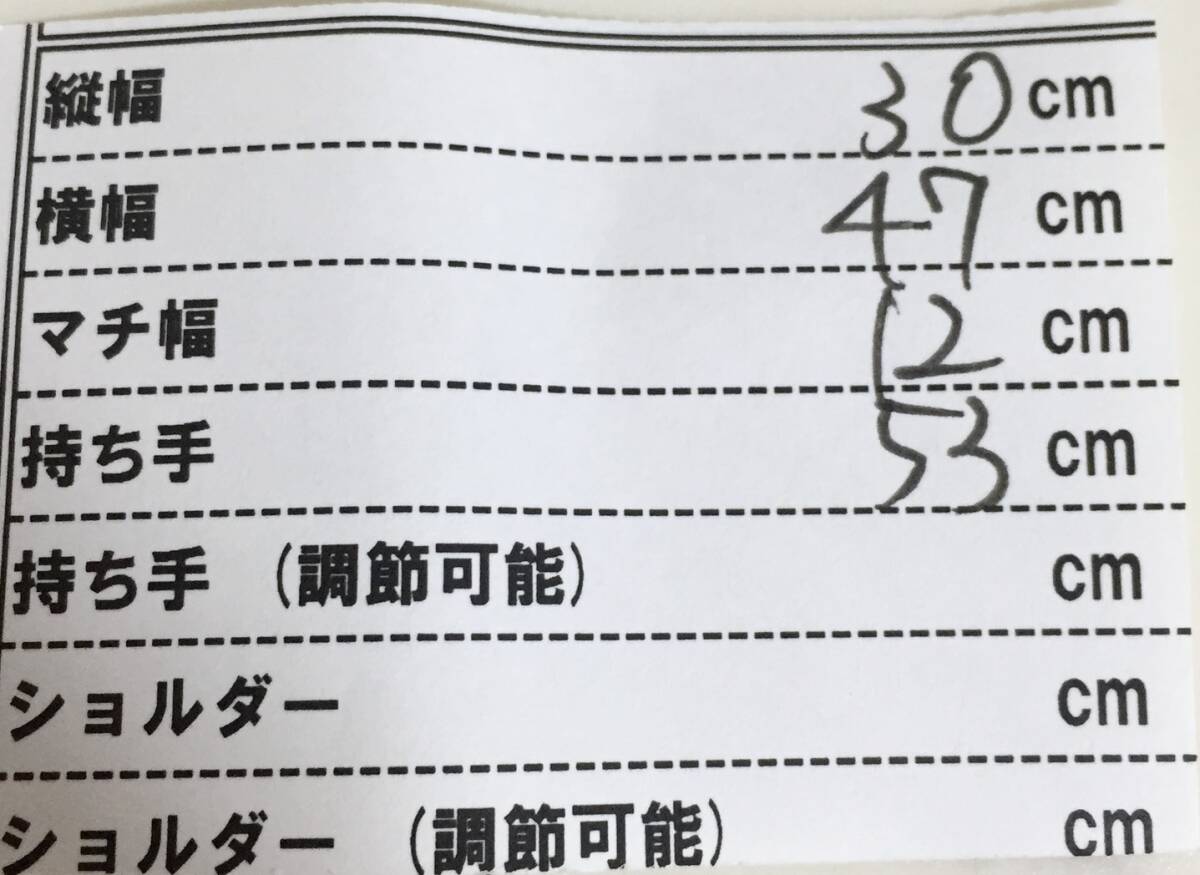 縦幅 30 cm
横幅 47 cm
マチ幅 12 cm
持ち手 53 cm
持ち手 (調節可能) cm
ショルダー cm
ショルダー (調節可能) cm